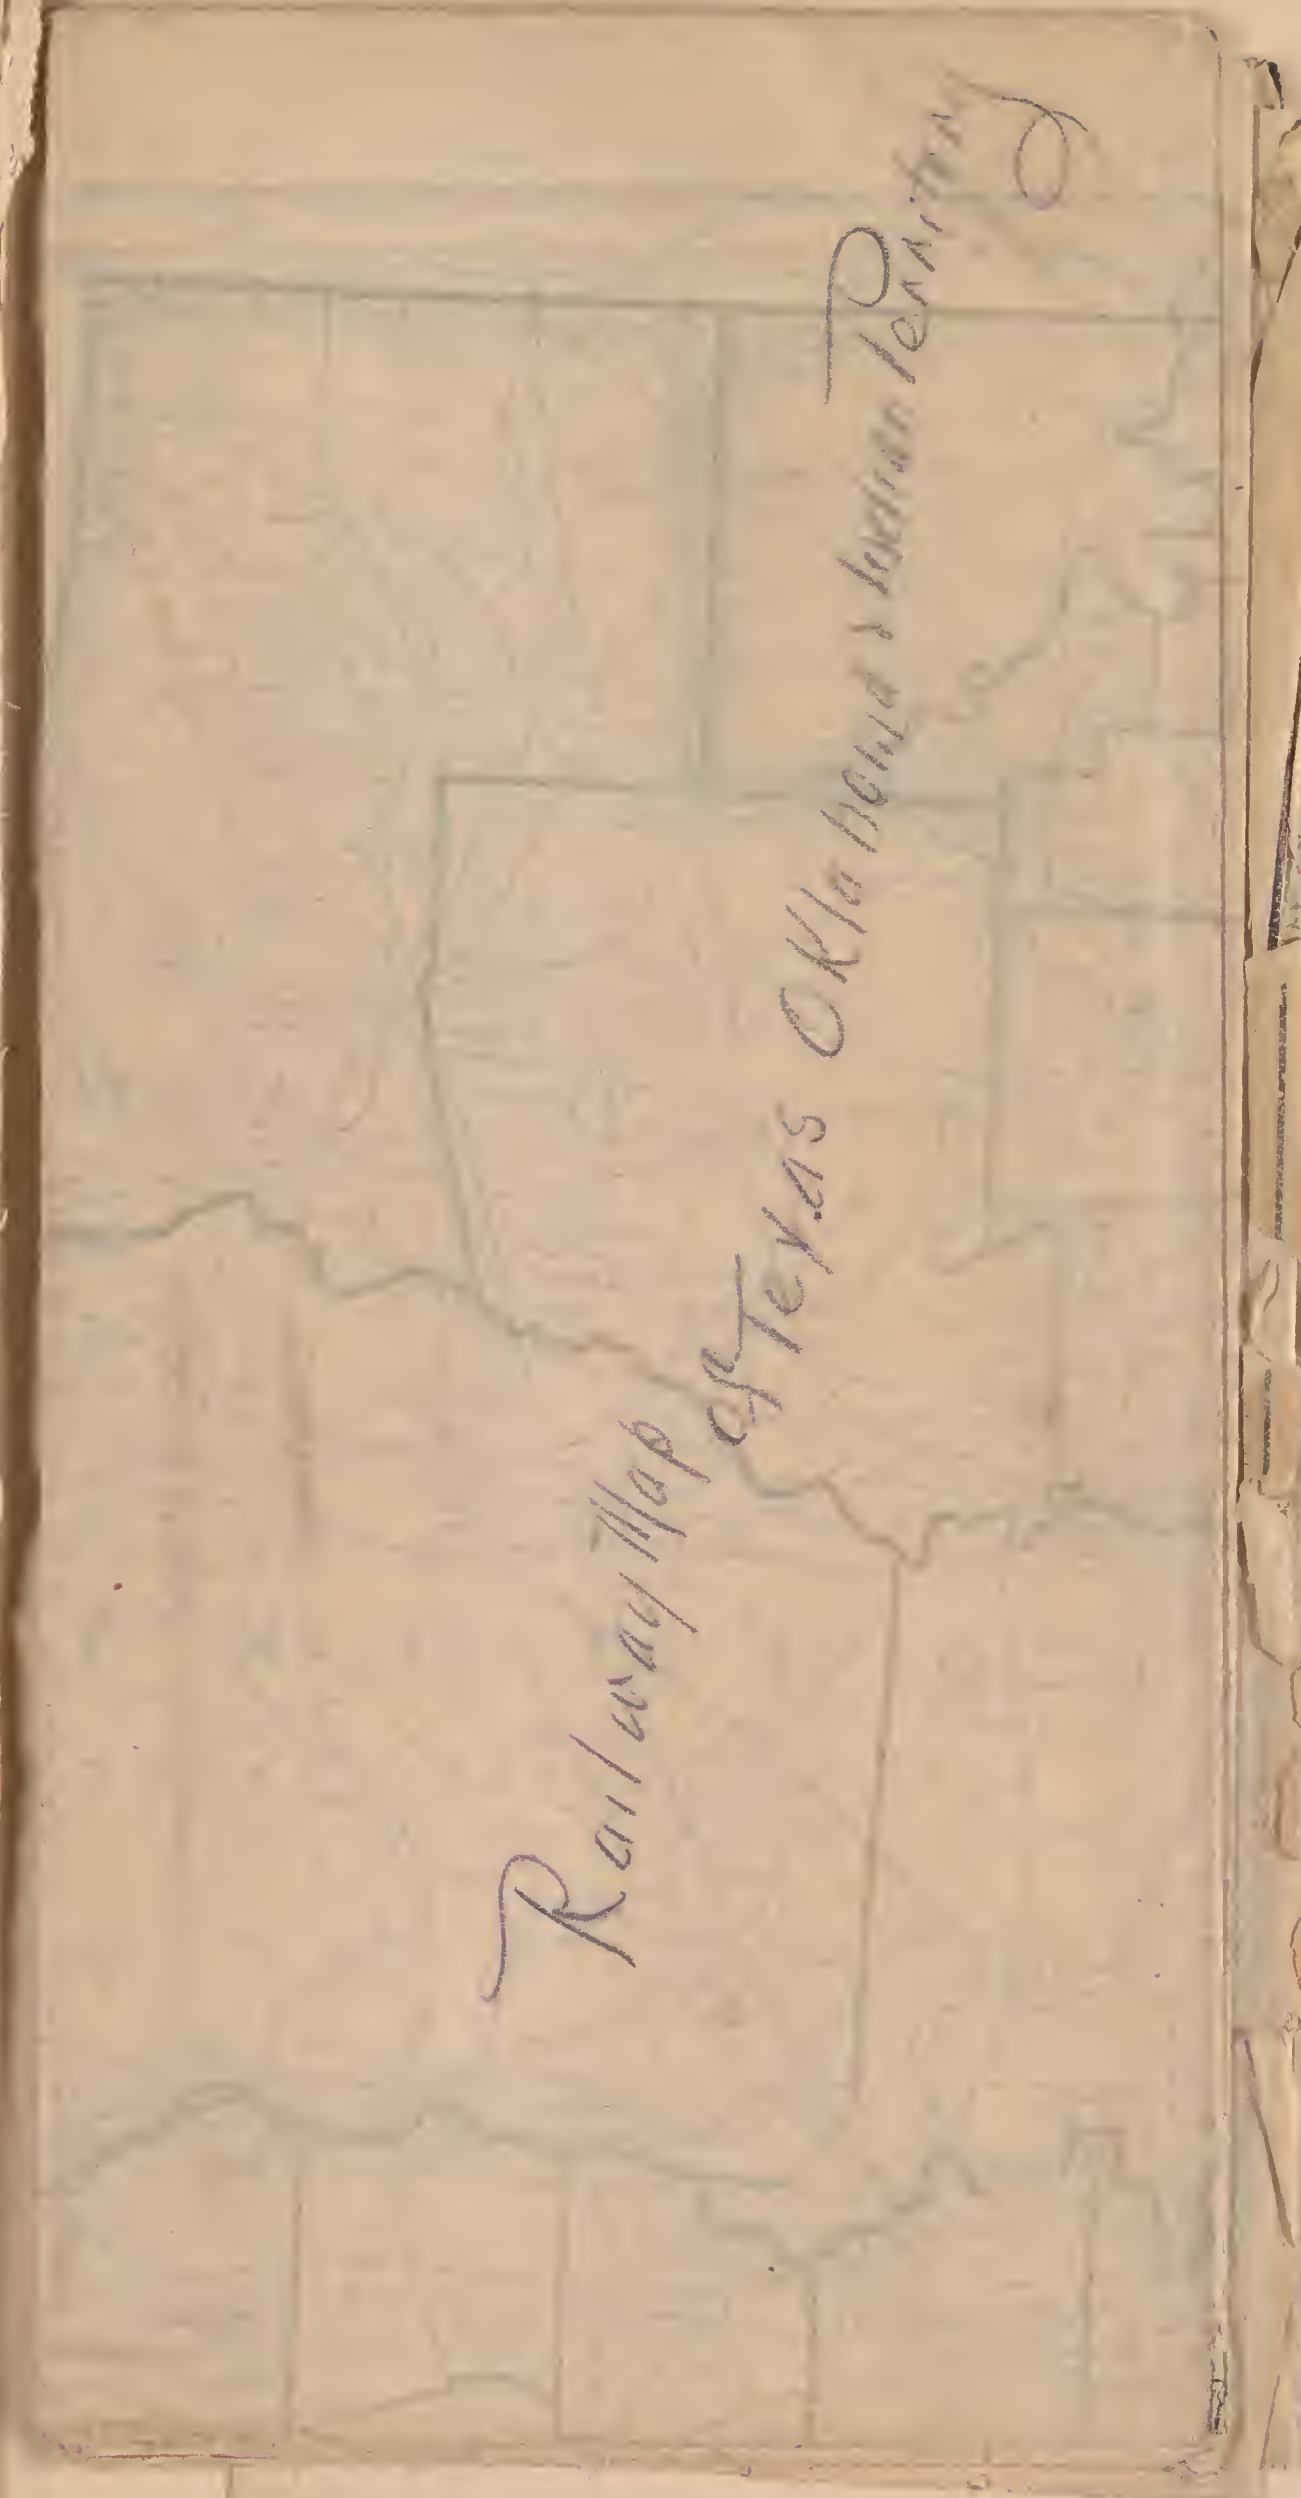 Railway Map
of Texas Oklahoma & Indian Territory